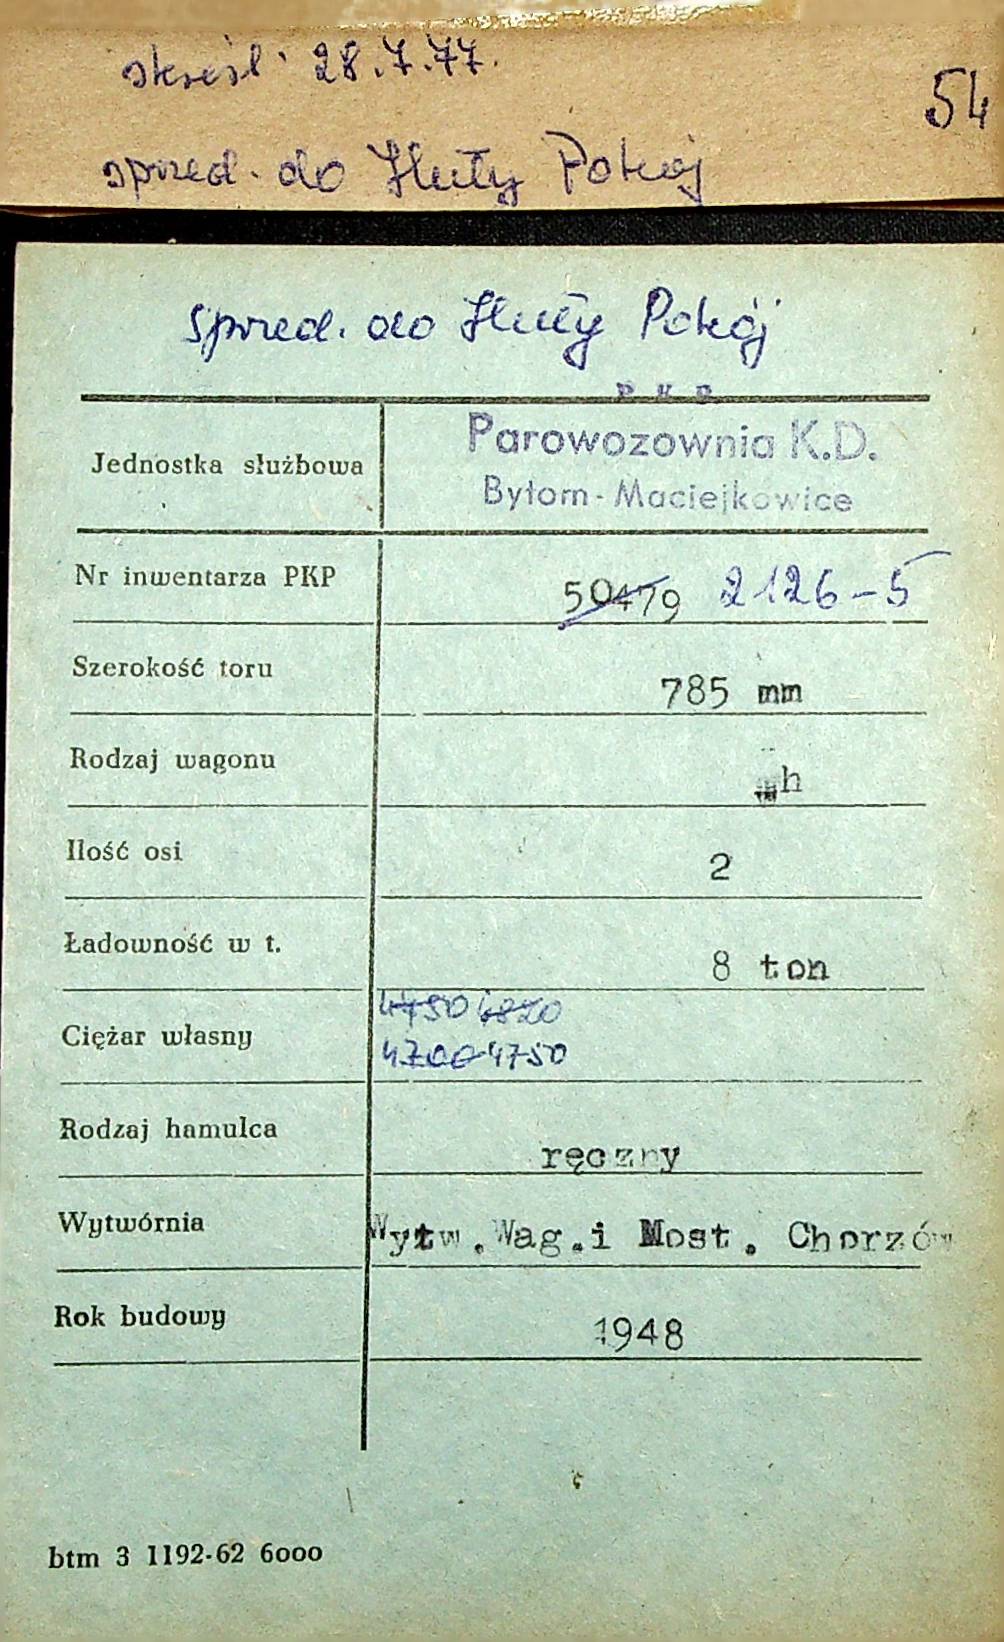 skreśl. 28.7.77.
54
sprzed. do Huty Pokój
Sprzed. do Huty Pokój
P K P
Jednostka służbowa Parowozownia K.D.
Bytom-Maciejkowice
Nr inwentarza PKP 50479 2126-5
Szerokość toru 785 mm
Rodzaj wagonu h
Ilość osi 2
Ładowność w t. 8 ton
4750 4820
Ciężar własny 4700 4750
Rodzaj hamulca ręczny
Wytwórnia Wytw.Wag.i Most. Chorzów
Rok budowy 1948
btm 3 1192-62 6000